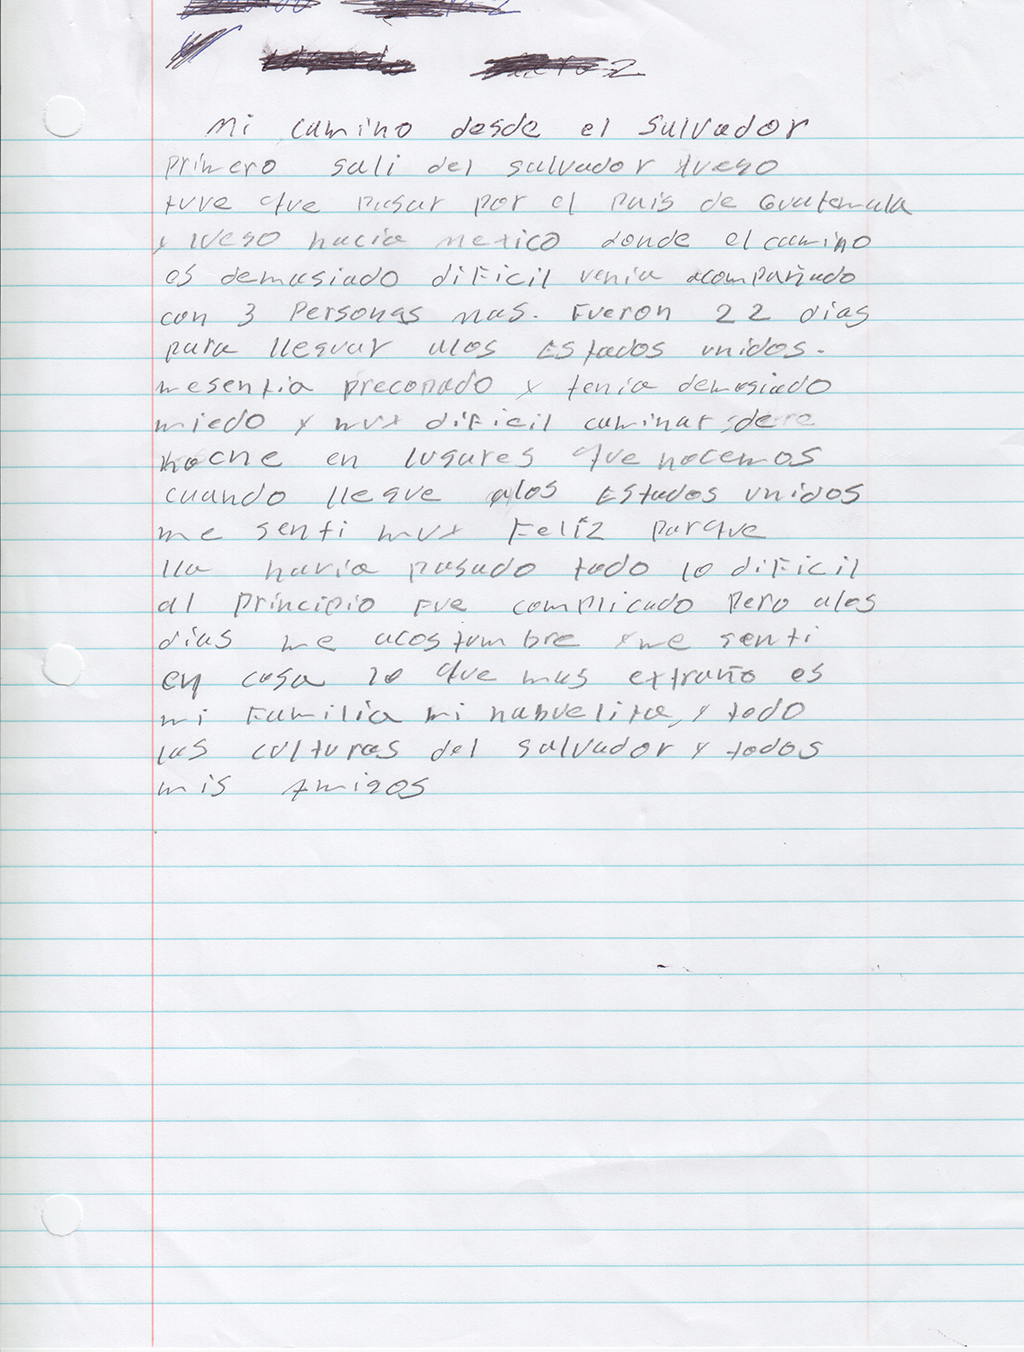 Mi camino desde el Salvador
primero sali del salvador luego
tuve que pasar por el pais de Guatemala
y luego hacia mexico donde el camino
es demasiado dificil venia acompañado
con 3 Personas mas. Fueron 22 dias
para lleguar alos Estados unidos.
mesentia precopado y tenia demasiado
miedo y muy dificil caminar de
noche en lugares que nocemos
cuando llegue alos Estados unidos
me senti muy Feliz parque
lla havia pasado todo lo dificil
al principio fue complicado pero alos
dias me acostumbre y me senti
en casa lo que mas extraño es
mi Familia mi nabuelita, y todo
las culturas del salvador y todos
mis Amigos